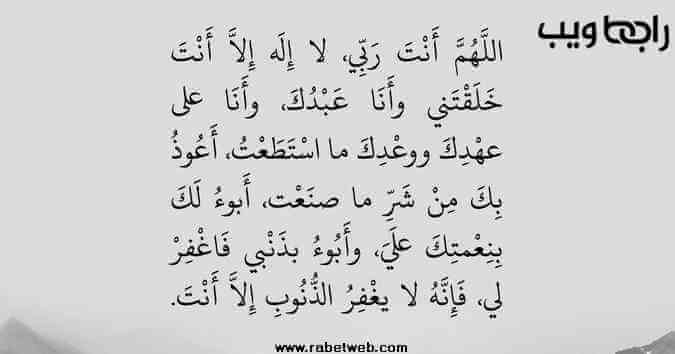 راجعا ويب
اللَّهُمَّ أَنْتَ رَبِّي، لا إِلَه إِلاَّ أَنْتَ
خَلَقْتَني وأَنَا عَبْدُكَ، وأَنَا على
عهْدِكَ ووعْدِكَ ما اسْتَطَعْتُ، أَعُوذُ
بِكَ مِنْ شَرِّ ما صنَعْت، أَبوءُ لَكَ
بِنِعْمتِكَ علَيَ، وأَبُوءُ بذَنْبي فَاغْفِرْ
لي، فَإِنَّهُ لا يغْفِرُ الذُّنُوبِ إِلاَّ أَنْتَ.
www.rabetweb.com